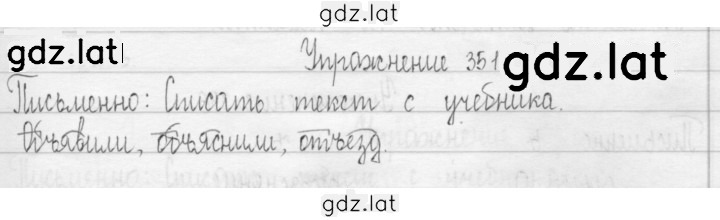 gdz.lat
gdz.lat
Упражнение 351
gdz.lat
Письменно: Списать текст с учебника.
Объявили, объяснили, отъезд
gdz.lat